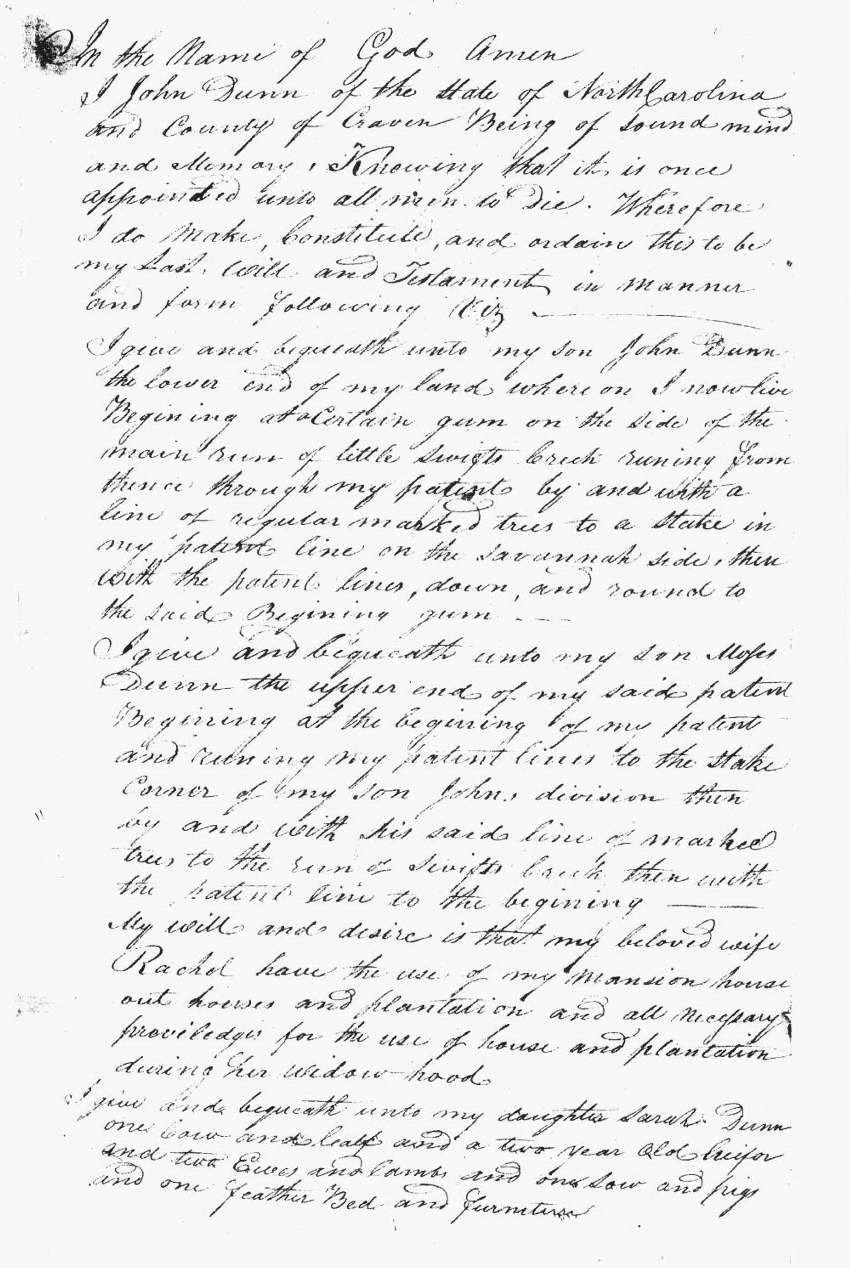 In the Name of God Amen
I John Dunn of the State of North Carolina
and County of Craven Being of sound mind
and Memory, Knowing that it is once
appointed unto all men to Die. Wherefore
I do Make, Constitute, and ordain this to be
my Last Will and Testament in manner
and form following Viz
I give and bequeath unto my son John Dunn
the lower end of my land where on I now live
Begining at a Certain gum on the side of the
main run of little Swifts Creek runing from
thence through my patent by and with a
line of regular marked trees to a Stake in
my patent line on the Savannah side, then
with the patent lines, down, and round to
the said Begining gum - - -
I give and bequeath unto my son Moses
Dunn the upper end of my said patent
Begining at the begining of my patent
and runing my patent lines to the Stake
Corner of my son Johns division then
by and with his said line of marked
trees to the run of Swifts Creek then with
the patent line to the begining
My will and desire is that my beloved wife
Rachel have the use of my mansion house
out houses and plantation and all necessary
proviledges for the use of house and plantation
during her widow hood
I give and bequeath unto my daughter Sarah Dunn
one Cow and Calf and a two year Old heifor
and two Ewes and lambs and one Sow and pigs
and one Feather Bed and furniture